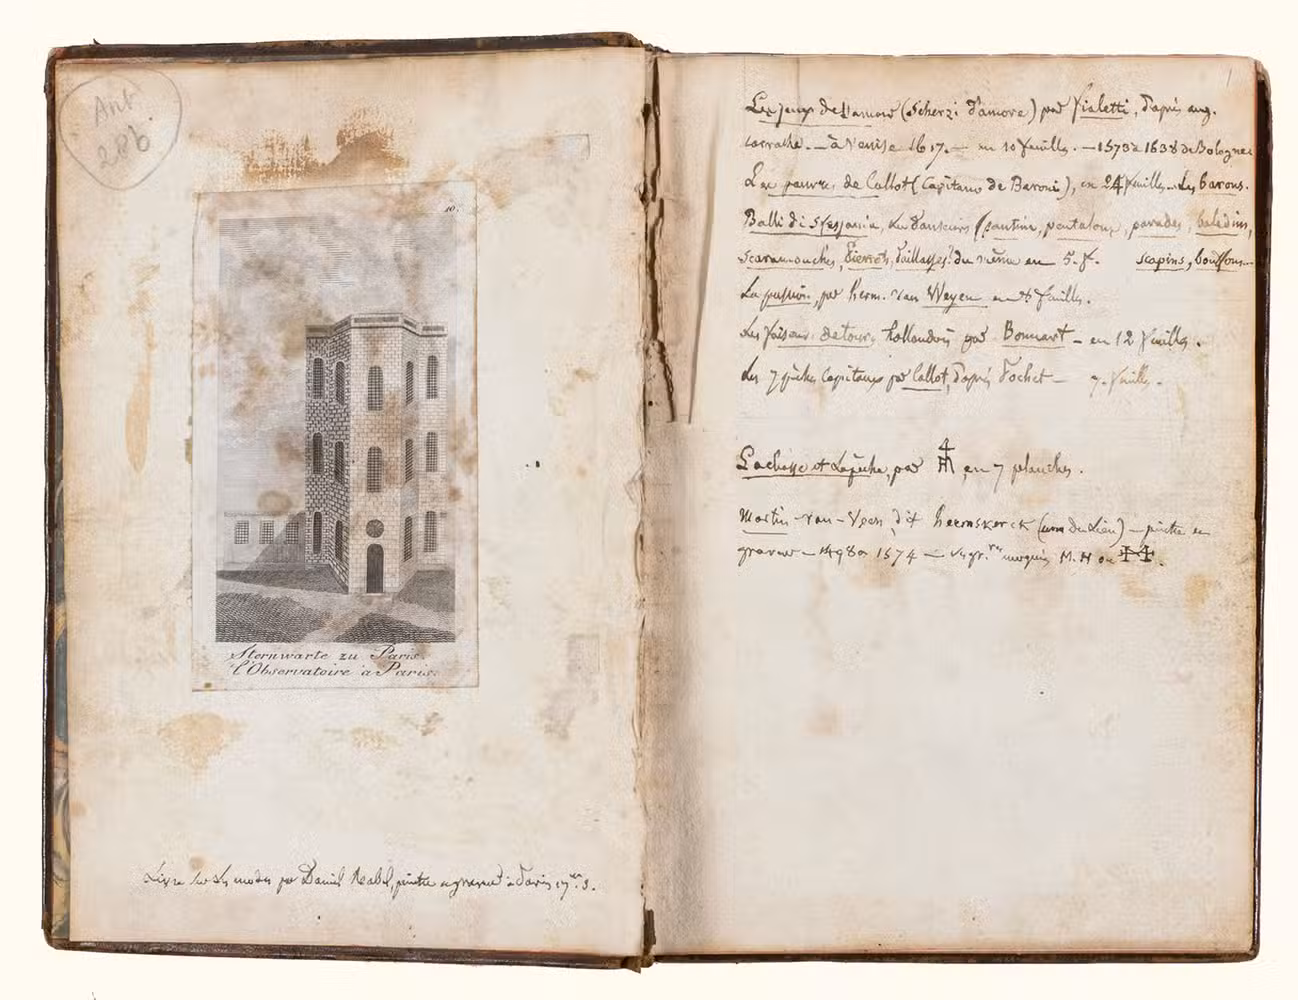 Ant.
286.
10.
Sternwarte zu Paris.
l'Observatoire à Paris.
Livre sur les modes par Daniel Rabel, peintre et graveur à Paris 17.e s.
1
Les jeux de l'amour (Scherzi d'amore) par Fialetti, d'après aug.
carrache. — à Venise 1617. — en 10 feuilles. — 1573 à 1638 de Bologne
Les pauvres de Callot (Capitano de Baroni), en 24 feuilles.. Les barons.
Balli di Sfessania, les danseurs (pantins, pantalons, parades, baladins,
scaramouches, Pierrots, Paillasses) du même en 5. f. scapins, bouffons...
La passion, par herm. van Weyen en feuilles.
Les faiseurs de tours hollandais par Bonnart — en 12 feuilles.
Les 7 Capitaux par Callot, d'après Pochet — 7. feuilles.
La chasse et La pêche, par en 7 planches.
Martin - van - Veen, dit heemskerck (nom du Lieu) — peintre et
graveur — 1498 à 1574 — M. H ou